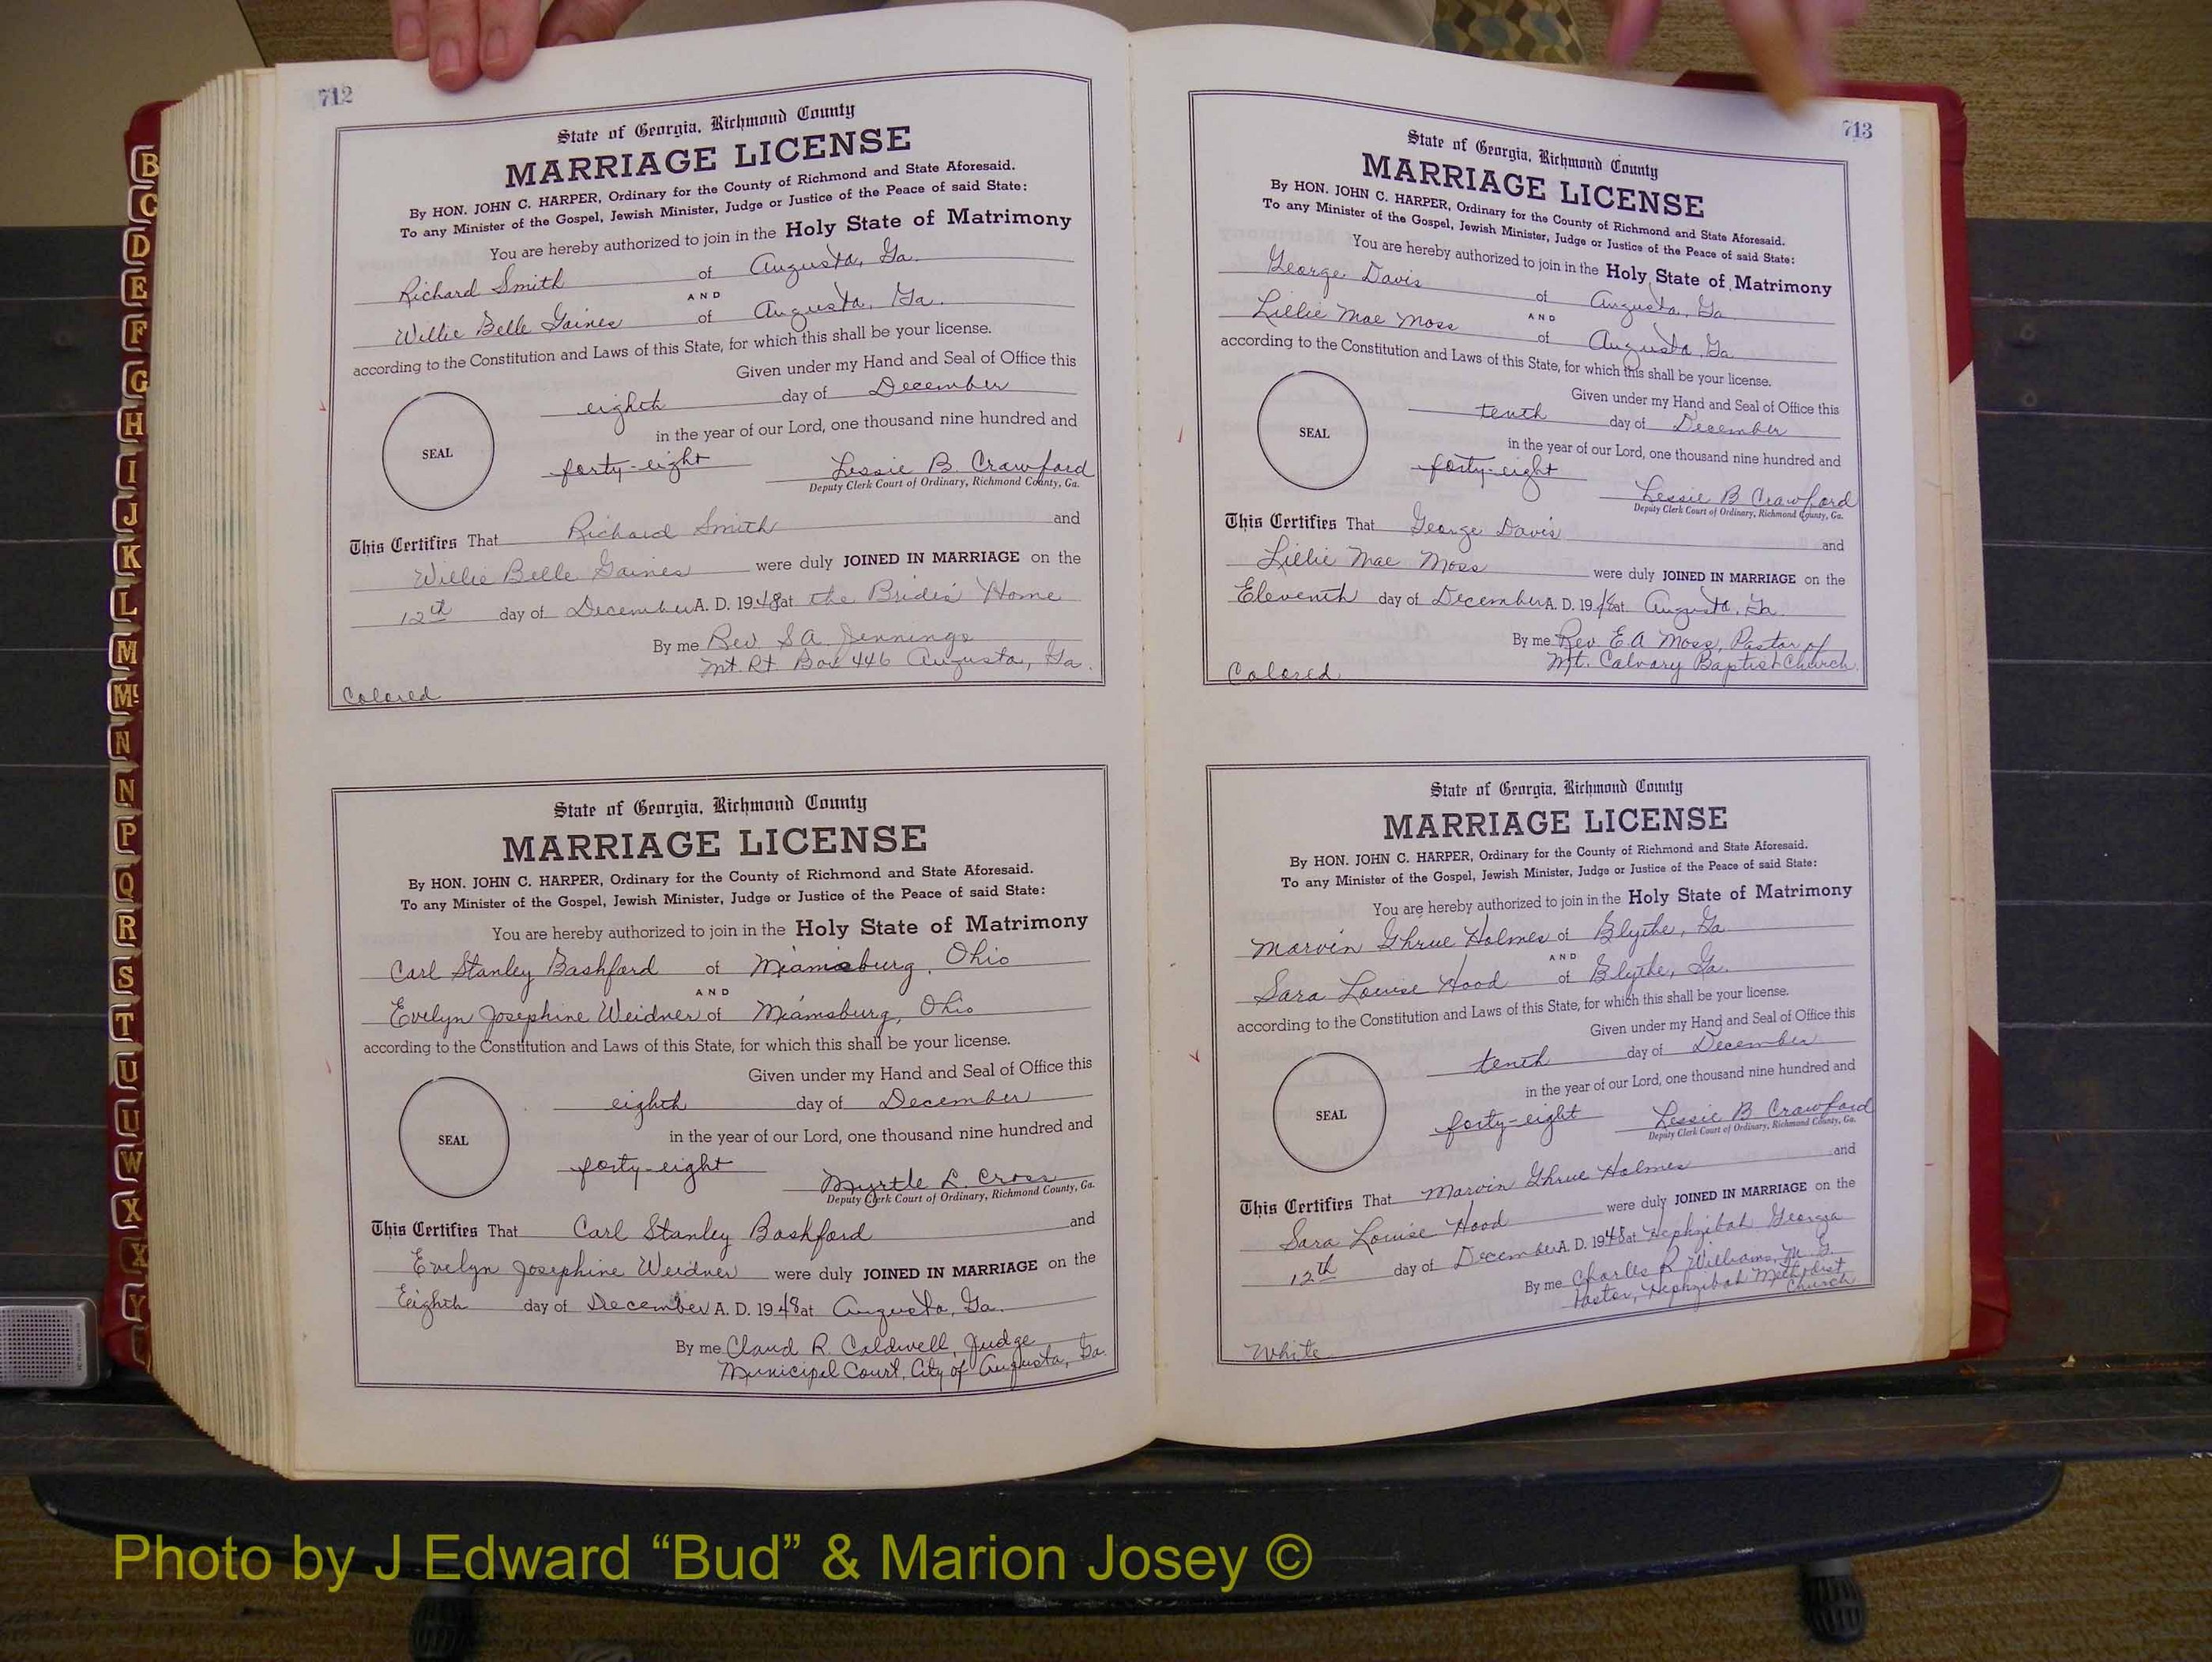 712
State of Georgia, Richmond County
MARRIAGE LICENSE
By HON. JOHN C. HARPER, Ordinary for the County of Richmond and State Aforesaid.
To any Minister of the Gospel, Jewish Minister, Judge or Justice of the Peace of said State:
You are hereby authorized to join in the Holy State of Matrimony
Richard Smith of Augusta, Ga.
AND
Willie Belle Gaines of Augusta, Ga.
according to the Constitution and Laws of this State, for which this shall be your license.
Given under my Hand and Seal of Office this
eighth day of December
in the year of our Lord, one thousand nine hundred and
SEAL
forty-eight Lessie B. Crawford
Deputy Clerk Court of Ordinary, Richmond County, Ga.
This Certifies That Richard Smith and
Willie Belle Gaines were duly JOINED IN MARRIAGE on the
12th day of December A. D. 1948 at the Bride's Home
By me Rev S.A. Jennings
Mt. Rt. Box 446 Augusta, Ga.
Colored
State of Georgia, Richmond County
MARRIAGE LICENSE
By HON. JOHN C. HARPER, Ordinary for the County of Richmond and State Aforesaid.
To any Minister of the Gospel, Jewish Minister, Judge or Justice of the Peace of said State:
You are hereby authorized to join in the Holy State of Matrimony
Carl Stanley Bashford of Miamisburg, Ohio
AND
Evelyn Josephine Weidner of Miamsburg, Ohio
according to the Constitution and Laws of this State, for which this shall be your license.
Given under my Hand and Seal of Office this
eighth day of December
SEAL
in the year of our Lord, one thousand nine hundred and
forty-eight Myrtle L. Cross
Deputy Clerk Court of Ordinary, Richmond County, Ga.
This Certifies That Carl Stanley Bashford and
Evelyn Josephine Weidner were duly JOINED IN MARRIAGE on the
Eighth day of December A. D. 1948 at Augusta, Ga.
By me Claud R. Caldwell, Judge
Municipal Court, City of Augusta, Ga.
713
State of Georgia, Richmond County
MARRIAGE LICENSE
By HON. JOHN C. HARPER, Ordinary for the County of Richmond and State Aforesaid.
To any Minister of the Gospel, Jewish Minister, Judge or Justice of the Peace of said State:
You are hereby authorized to join in the Holy State of Matrimony
George Davis of Augusta, Ga
AND
Lillie Mae Moss of Augusta, Ga
according to the Constitution and Laws of this State, for which this shall be your license.
Given under my Hand and Seal of Office this
tenth day of December
SEAL
in the year of our Lord, one thousand nine hundred and
forty-eight Lessie B Crawford
Deputy Clerk Court of Ordinary, Richmond County, Ga.
This Certifies That George Davis and
Lillie Mae Moss were duly JOINED IN MARRIAGE on the
Eleventh day of December A. D. 1948 at Augusta, Ga.
By me Rev E.A Moss, Pastor of
Mt. Calvary Baptist Church.
Colored
State of Georgia, Richmond County
MARRIAGE LICENSE
By HON. JOHN C. HARPER, Ordinary for the County of Richmond and State Aforesaid.
To any Minister of the Gospel, Jewish Minister, Judge or Justice of the Peace of said State:
You are hereby authorized to join in the Holy State of Matrimony
Marvin Ghrue Holmes of Blythe, Ga
AND
Sara Louise Hood of Blythe, Ga.
according to the Constitution and Laws of this State, for which this shall be your license.
Given under my Hand and Seal of Office this
tenth day of December
in the year of our Lord, one thousand nine hundred and
SEAL
forty-eight Lessie B Crawford
Deputy Clerk Court of Ordinary, Richmond County, Ga.
This Certifies That Marvin Ghrue Holmes and
Sara Louise Hood were duly JOINED IN MARRIAGE on the
12th day of December A. D. 1948 at Hephzibah Georgia
By me Charles R Williams, M. G.
Pastor, Hephzibah Methodist
Church
White
B
C
D
E
F
G
H
I
J
K
L
M
Mc
N
N
P
Q
R
S
T
U
U
W
X
X
Y
Photo by J Edward “Bud” & Marion Josey ©